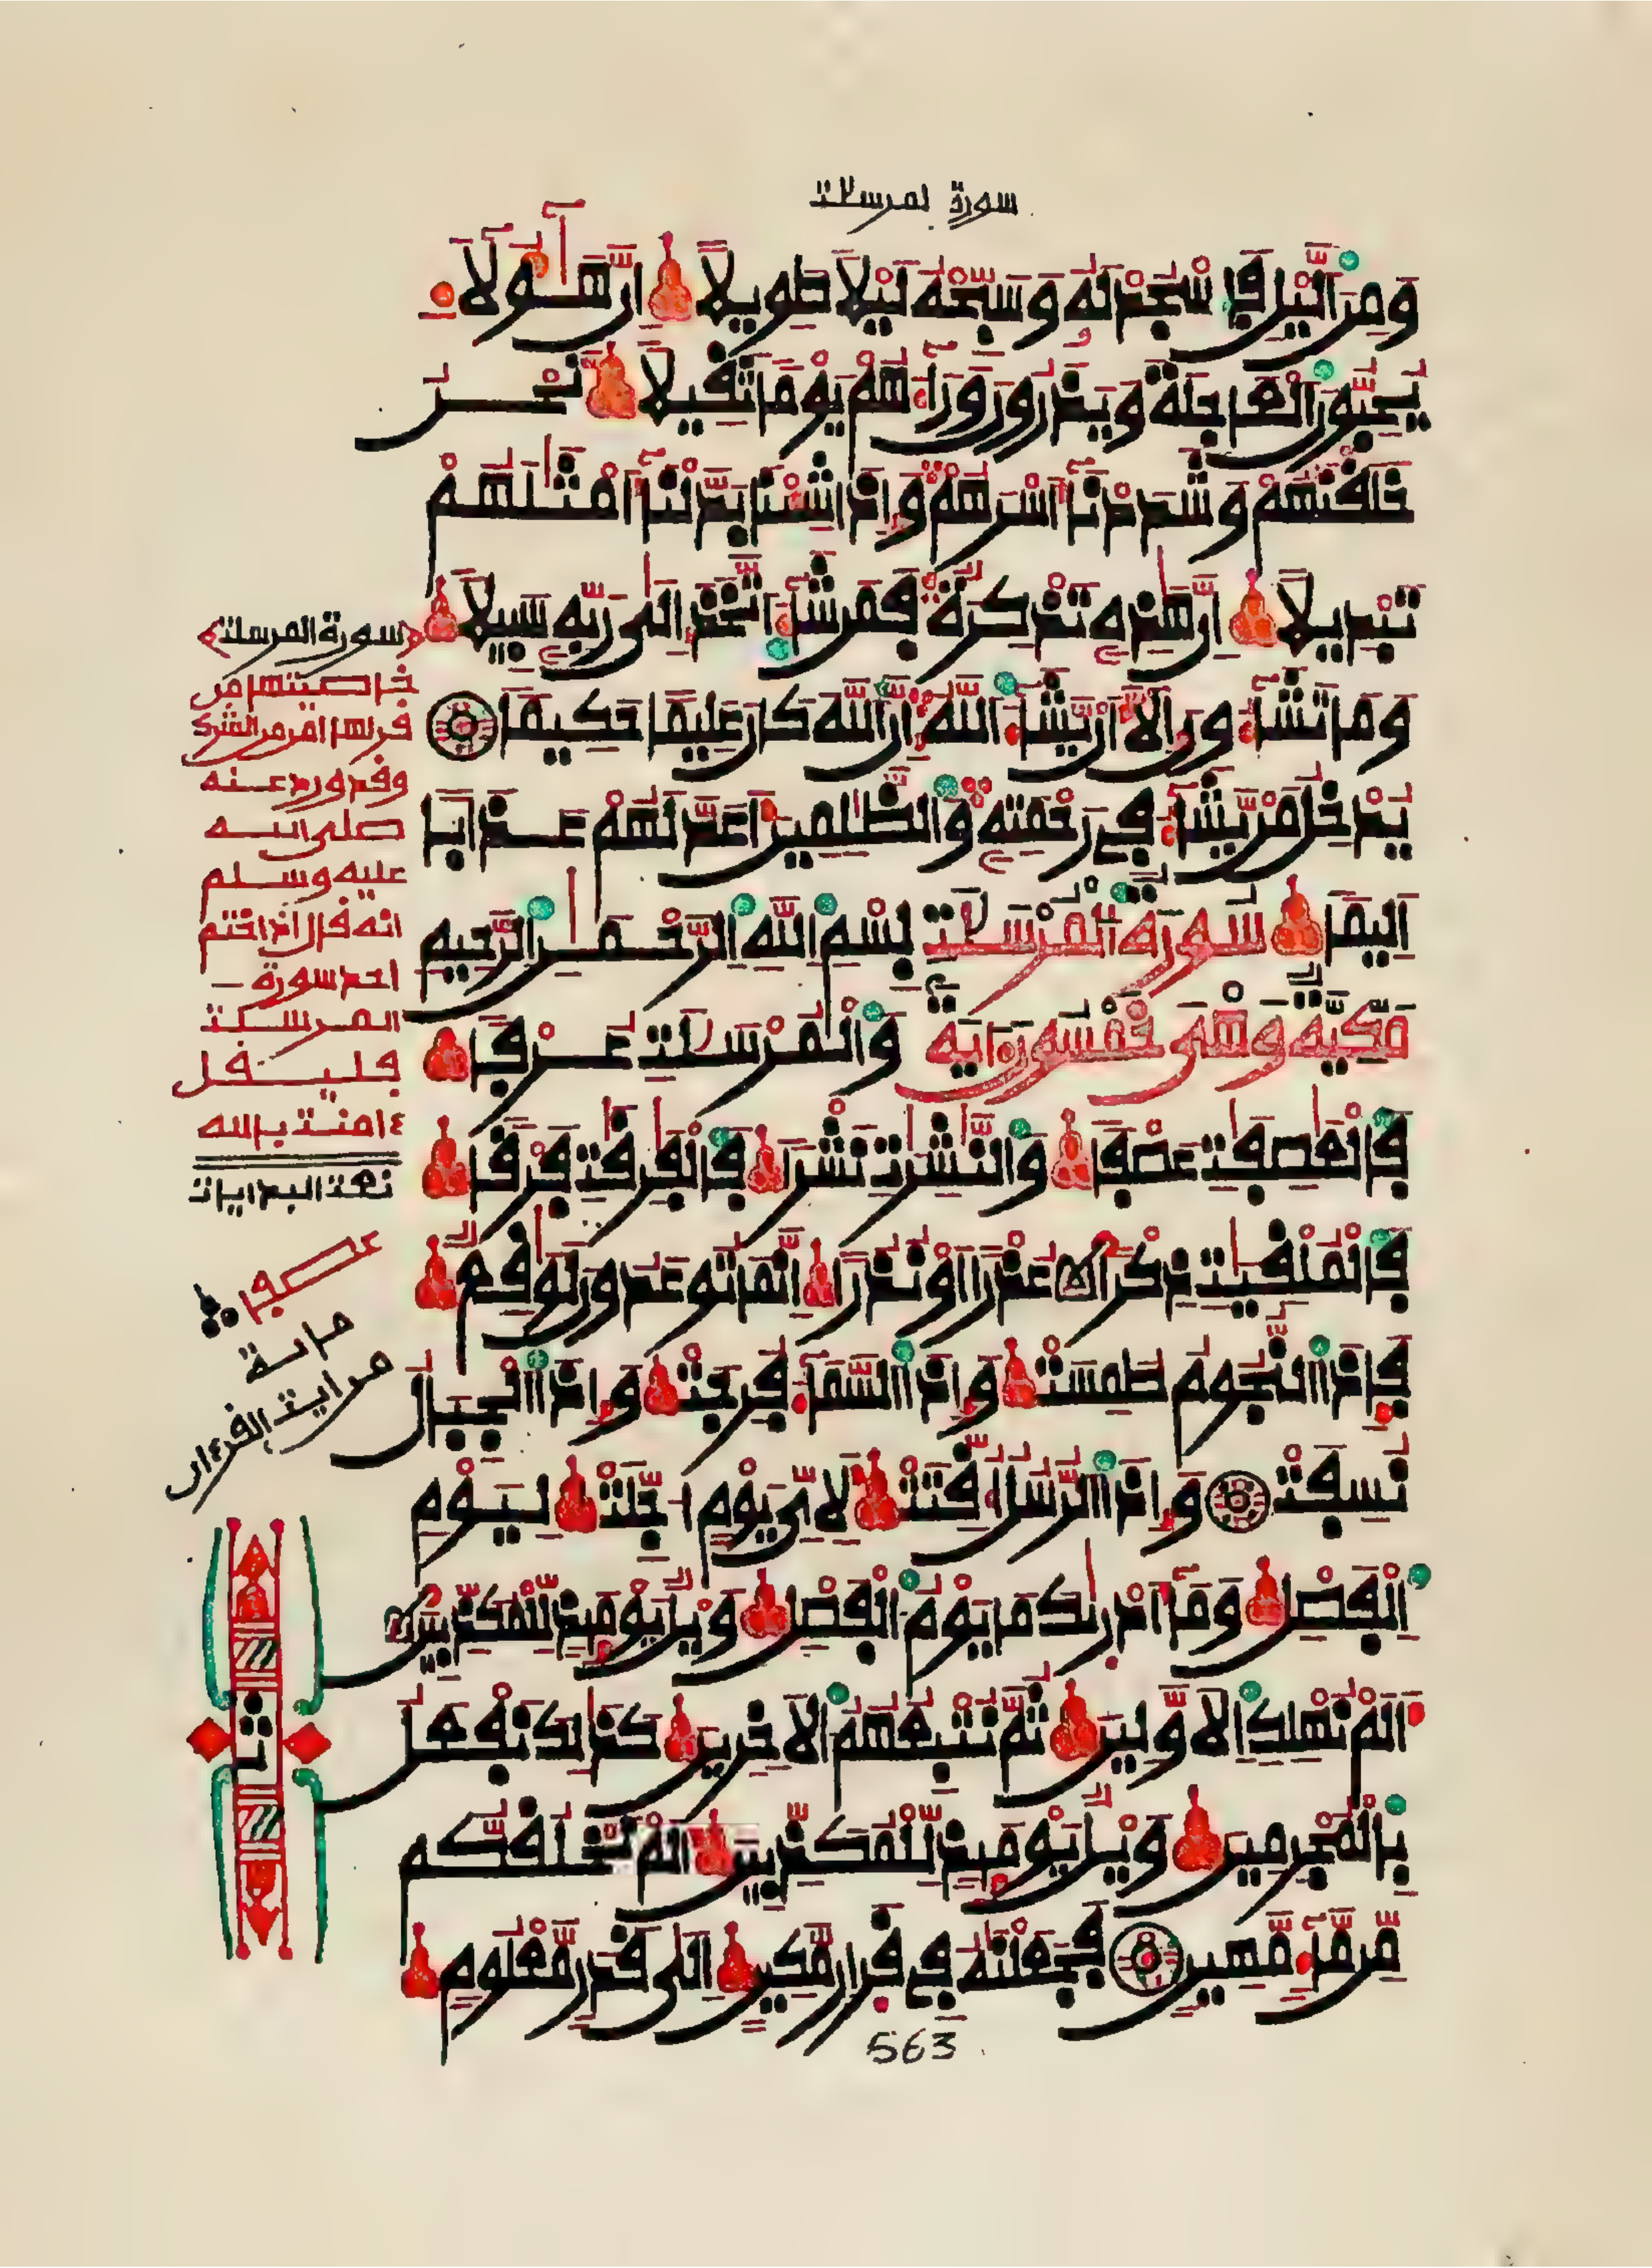 سورة لمرسلات
وَمِنَ الَّيْلِ فَاسْجُدْ لَهُ وَسَبِّحْهُ لَيْلًا طَوِيلًا اِنَّ هَـٰٓؤُلَآءِ
يُحِبُّونَ الْعَاجِلَةَ وَيَذَرُونَ وَرَآءَهُمْ يَوْمًا ثَقِيلًا نَّحْنُ
خَلَقْنَٰهُمْ وَشَدَدْنَآ أَسْرَهُمْ وَإِذَا شِئْنَا بَدَّلْنَآ أَمْثَٰلَهُمْ
تَبْدِيلًا إِنَّ هَٰذِهِ تَذْكِرَةٌ فَمَن شَآءَ اتَّخَذَ إِلَىٰ رَبِّهِ سَبِيلًا
وَمَا تَشَآءُونَ إِلَّآ أَنْ يَّشَآءَ اللَّهُ إِنَّ اللَّهَ كَانَ عَلِيمًا حَكِيمًا
يُدْخِلُ مَنْ يَّشَآءُ فِي رَحْمَتِهِ وَالظَّٰلِمِينَ أَعَدَّ لَهُمْ عَذَابًا
أَلِيمًا سورة المرسلات بِسْمِ اللَّهِ الرَّحْمَٰنِ الرَّحِيمِ
مكية وهي خمسون ءاية وَالْمُرْسَلَٰتِ عُرْفًا
فَالْعَٰصِفَٰتِ عَصْفًا وَالنَّٰشِرَٰتِ نَشْرًا فَالْفَٰرِقَٰتِ فَرْقًا
فَالْمُلْقِيَٰتِ ذِكْرًا عُذْرًا أَوْ نُذُرًا إِنَّمَا تُوعَدُونَ لَوَٰقِعٌ
فَإِذَا النُّجُومُ طُمِسَتْ وَإِذَا السَّمَآءُ فُرِجَتْ وَإِذَا الْجِبَالُ
نُسِفَتْ وَإِذَا الرُّسُلُ أُقِّتَتْ لِأَيِّ يَوْمٍ أُجِّلَتْ لِيَوْمِ
الْفَصْلِ وَمَآ أَدْرَىٰكَ مَا يَوْمُ الْفَصْلِ وَيْلٌ يَوْمَئِذٍ لِّلْمُكَذِّبِينَ
أَلَمْ نُهْلِكِ الْأَوَّلِينَ ثُمَّ نُتْبِعُهُمُ الْأَخِرِينَ كَذَٰلِكَ نَفْعَلُ
بِالْمُجْرِمِينَ وَيْلٌ يَوْمَئِذٍ لِّلْمُكَذِّبِينَ أَلَمْ نَخْلُقكُّم
مِّن مَّآءٍ مَّهِينٍ فَجَعَلْنَٰهُ فِي قَرَارٍ مَّكِينٍ إِلَىٰ قَدَرٍ مَّعْلُومٍ
563
سورة المرسلت
خاصيتها من
قرأها امن من الشرك
وقد ورد عنه
صلى الله
عليه وسلم
انه قال اذا ختم
احد سورة
المرسلت
فليقل
ءامنت بالله
تمت البدايات
مائة
من ايت القرءان
ثمن